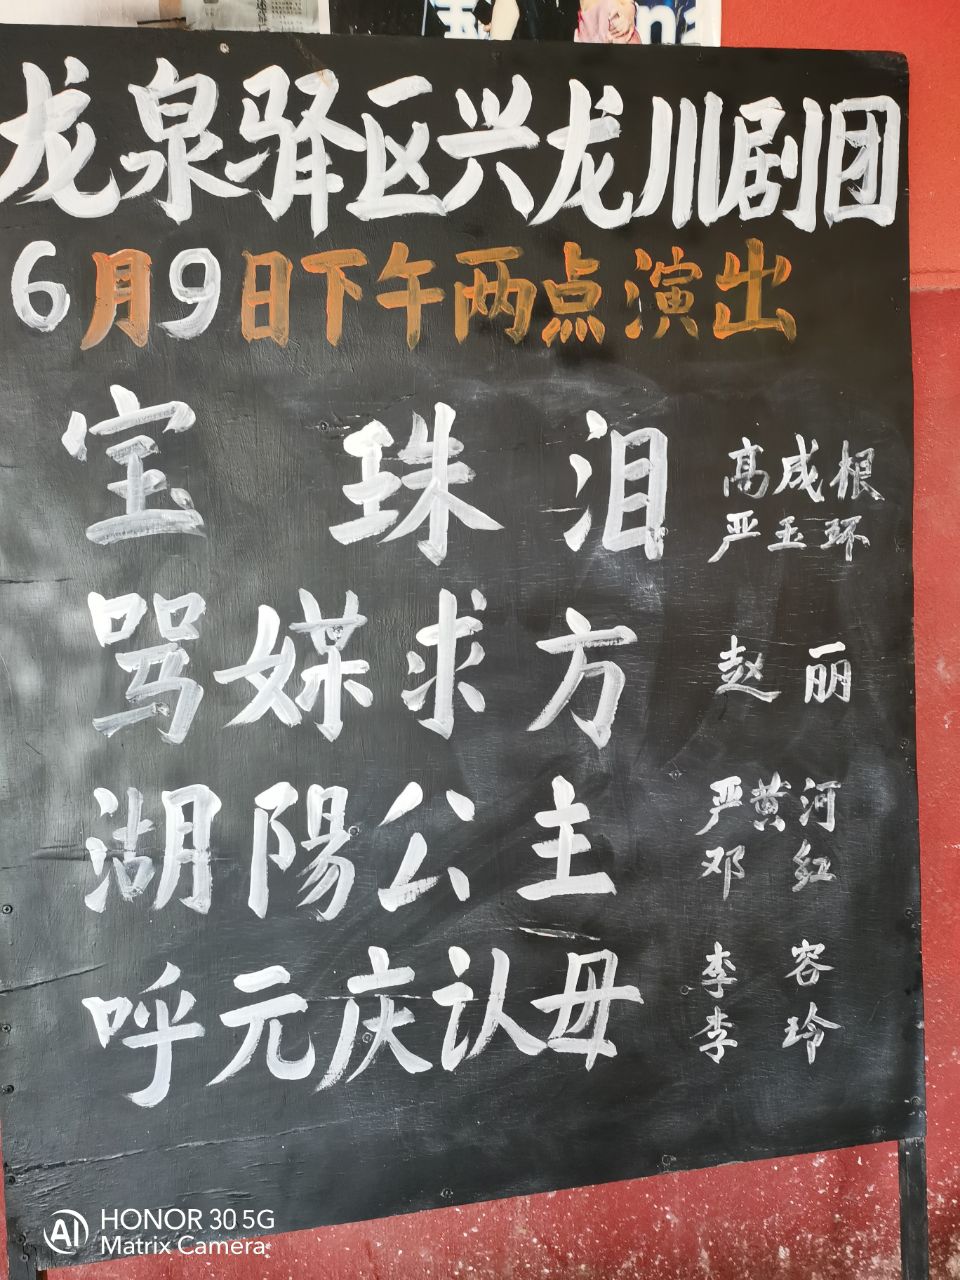 龙泉驿区兴龙川剧团
6月9日下午两点演出
宝珠泪 高成根
严玉环
骂媒求方 赵丽
湖陽公主 严黄河
邓红
呼元庆认母 李容
李玲
AI HONOR 30 5G
Matrix Camera